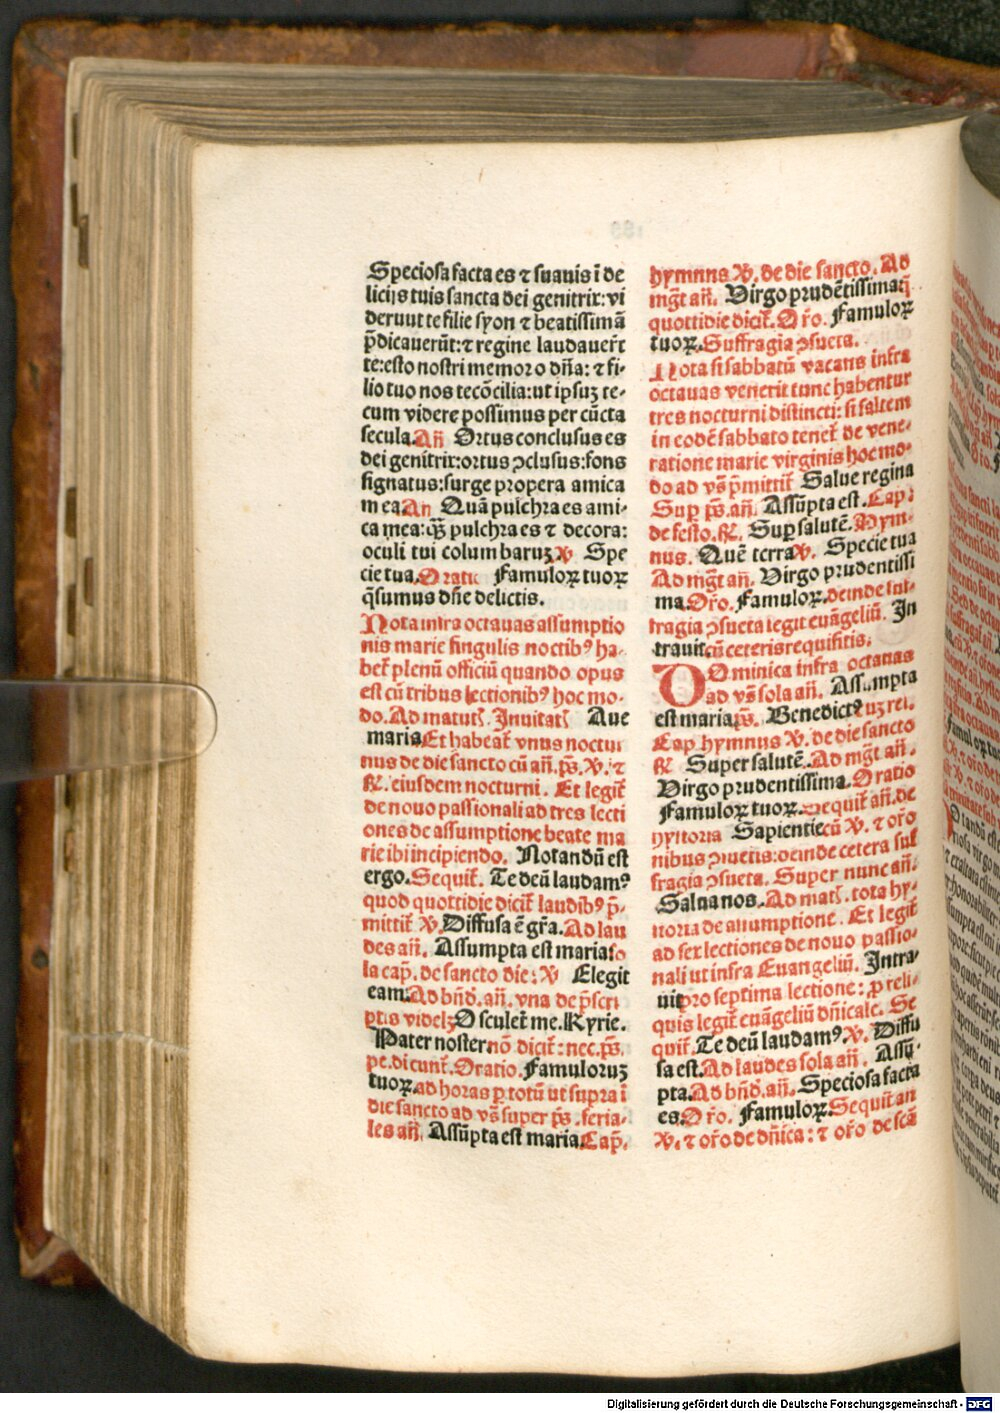 Speciosa facta es ⁊ suauis ī de
licijs tuis sancta dei genitrix: vi
derunt te filie syon ⁊ beatissimā
p̄dicauerūt: ⁊ regine laudauer̄t
te: esto nostri memor o dn̄a: ⁊ fi-
lio tuo nos tecōcilia: ut ipsuꝫ te-
cum videre possimus per cūcta
secula. An̄ Ortus conclusus es
dei genitrix: ortus ↄclusus: fons
signatus: surge propera amica
mea An Quā pulchra es ami-
ca mea: qꝫ̄ pulchra es ⁊ decora:
oculi tui columbaruꝫ ℣ Spe
cie tua. Oratio Famuloꝝ tuoꝝ
q̄sumus dn̄e delictis.
Nota infra octauas assumptio
nis marie singulis noctibꝰ ha-
bet̄ plenū officiū quando opus
est cū tribus lectionibꝰ hoc mo-
do. Ad matut̄. Inuitat̄ Aue
maria Et habeat̄ vnus noctur
nus de die sancto cū an̄. p̄s. ℣. ⁊
℟. eiusdem nocturni. Et legit̄
de nouo passionali ad tres lecti
ones de assumptione beate ma
rie ibi incipiendo. Notandū est
ergo. Sequit̄. Te deū laudamꝰ
quod quottidie dicit̄ laudibꝰ p̄-
mittit̄ ℣. Diffusa ē gr̄a. Ad lau
des an̄. Assumpta est maria: so
la cap̄. de sancto die: ℣ Elegit
eam. Ad bn̄d. an̄. vna de p̄scri
ptis videlꝫ Osculet̄ me. Kyrie.
Pater noster nō dicit̄: nec. p̄s.
pe. dicunt̄. Oratio. Famuloruꝫ
tuoꝝ. ad horas ꝑ totū ut supra ī
die sancto ad vs̄ super p̄s. feria-
les an̄. Assūpta est maria. Cap̄.
hymnus ℣. de die sancto. Ad
mgt̄ an̄. Virgo prudētissima: q̄
quottidie dicit̄. Or̄o. Famuloꝝ
tuoꝝ. Suffragia ↄsueta.
Nota si sabbatū vacans infra
octauas venerit tunc habentur
tres nocturni distincti: si saltem
in eodē sabbato tenet̄ de vene-
ratione marie virginis hoc mo-
do ad vs̄ p̄mittit̄ Salue regina
Sup p̄s. an̄. Assūpta est. Cap̄:
de festo. ℟. Sup salutē. Hym-
nus. Quē terra ℣. Specie tua
Ad mgt̄ an̄. Virgo prudentissi
ma. Or̄o. Famuloꝝ. deinde suf-
fragia ↄsueta legit euāgeliū. In
trauit cū ceteris requisitis.
Dominica infra octauas
ad vs̄ sola an̄. Assumpta
est maria p̄s. Benedictꝰ
Cap hymnus ℣. de die sancto
℟ Super salutē. Ad mgt̄ an̄.
Virgo prudentissima. Oratio
Famuloꝝ tuoꝝ. Sequit̄ an̄. de
hystoria Sapientie cū ℣. ⁊ or̄o
nibus ↄsuetis: deinde cetera suf
fragia ↄsueta. Super nunc an̄.
Salua nos. Ad mat̄. tota hy-
storia de assumptione. Et legit̄
ad sex lectiones de nouo passio-
nali ut infra Euangeliū. Intra-
uit pro septima lectione: ꝓ reli-
quis legit̄ euāgeliū dn̄icale. Se
quit̄. Te deū laudamꝰ. ℣. Diffu
sa est. Ad laudes sola an̄. Assū-
pta. Ad bn̄d. an̄. Speciosa facta
es. Or̄o. Famuloꝝ. Sequit̄ an
℣. ⁊ or̄o de dn̄ica: ⁊ or̄o de scā
Digitalisierung gefördert durch die Deutsche Forschungsgemeinschaft - DFG